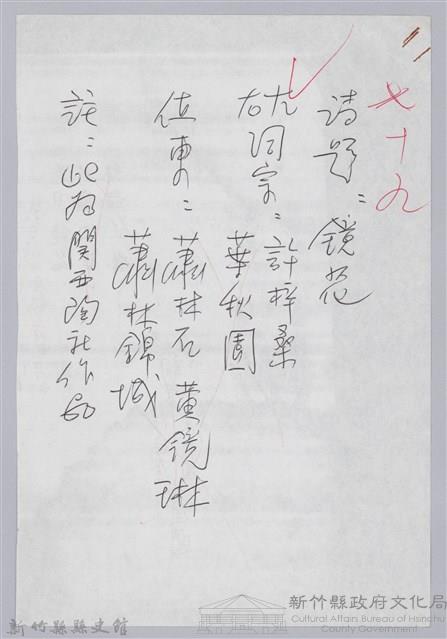 七十九
詩題：鏡花
左詞宗：許梓桑
右　　　葉秋園
值東：蕭林石 黃鏡琳
蕭林錦城
註：此為關西陶社作品
新竹縣縣史館
新竹縣政府文化局
Cultural Affairs Bureau of Hsinchu
County Government